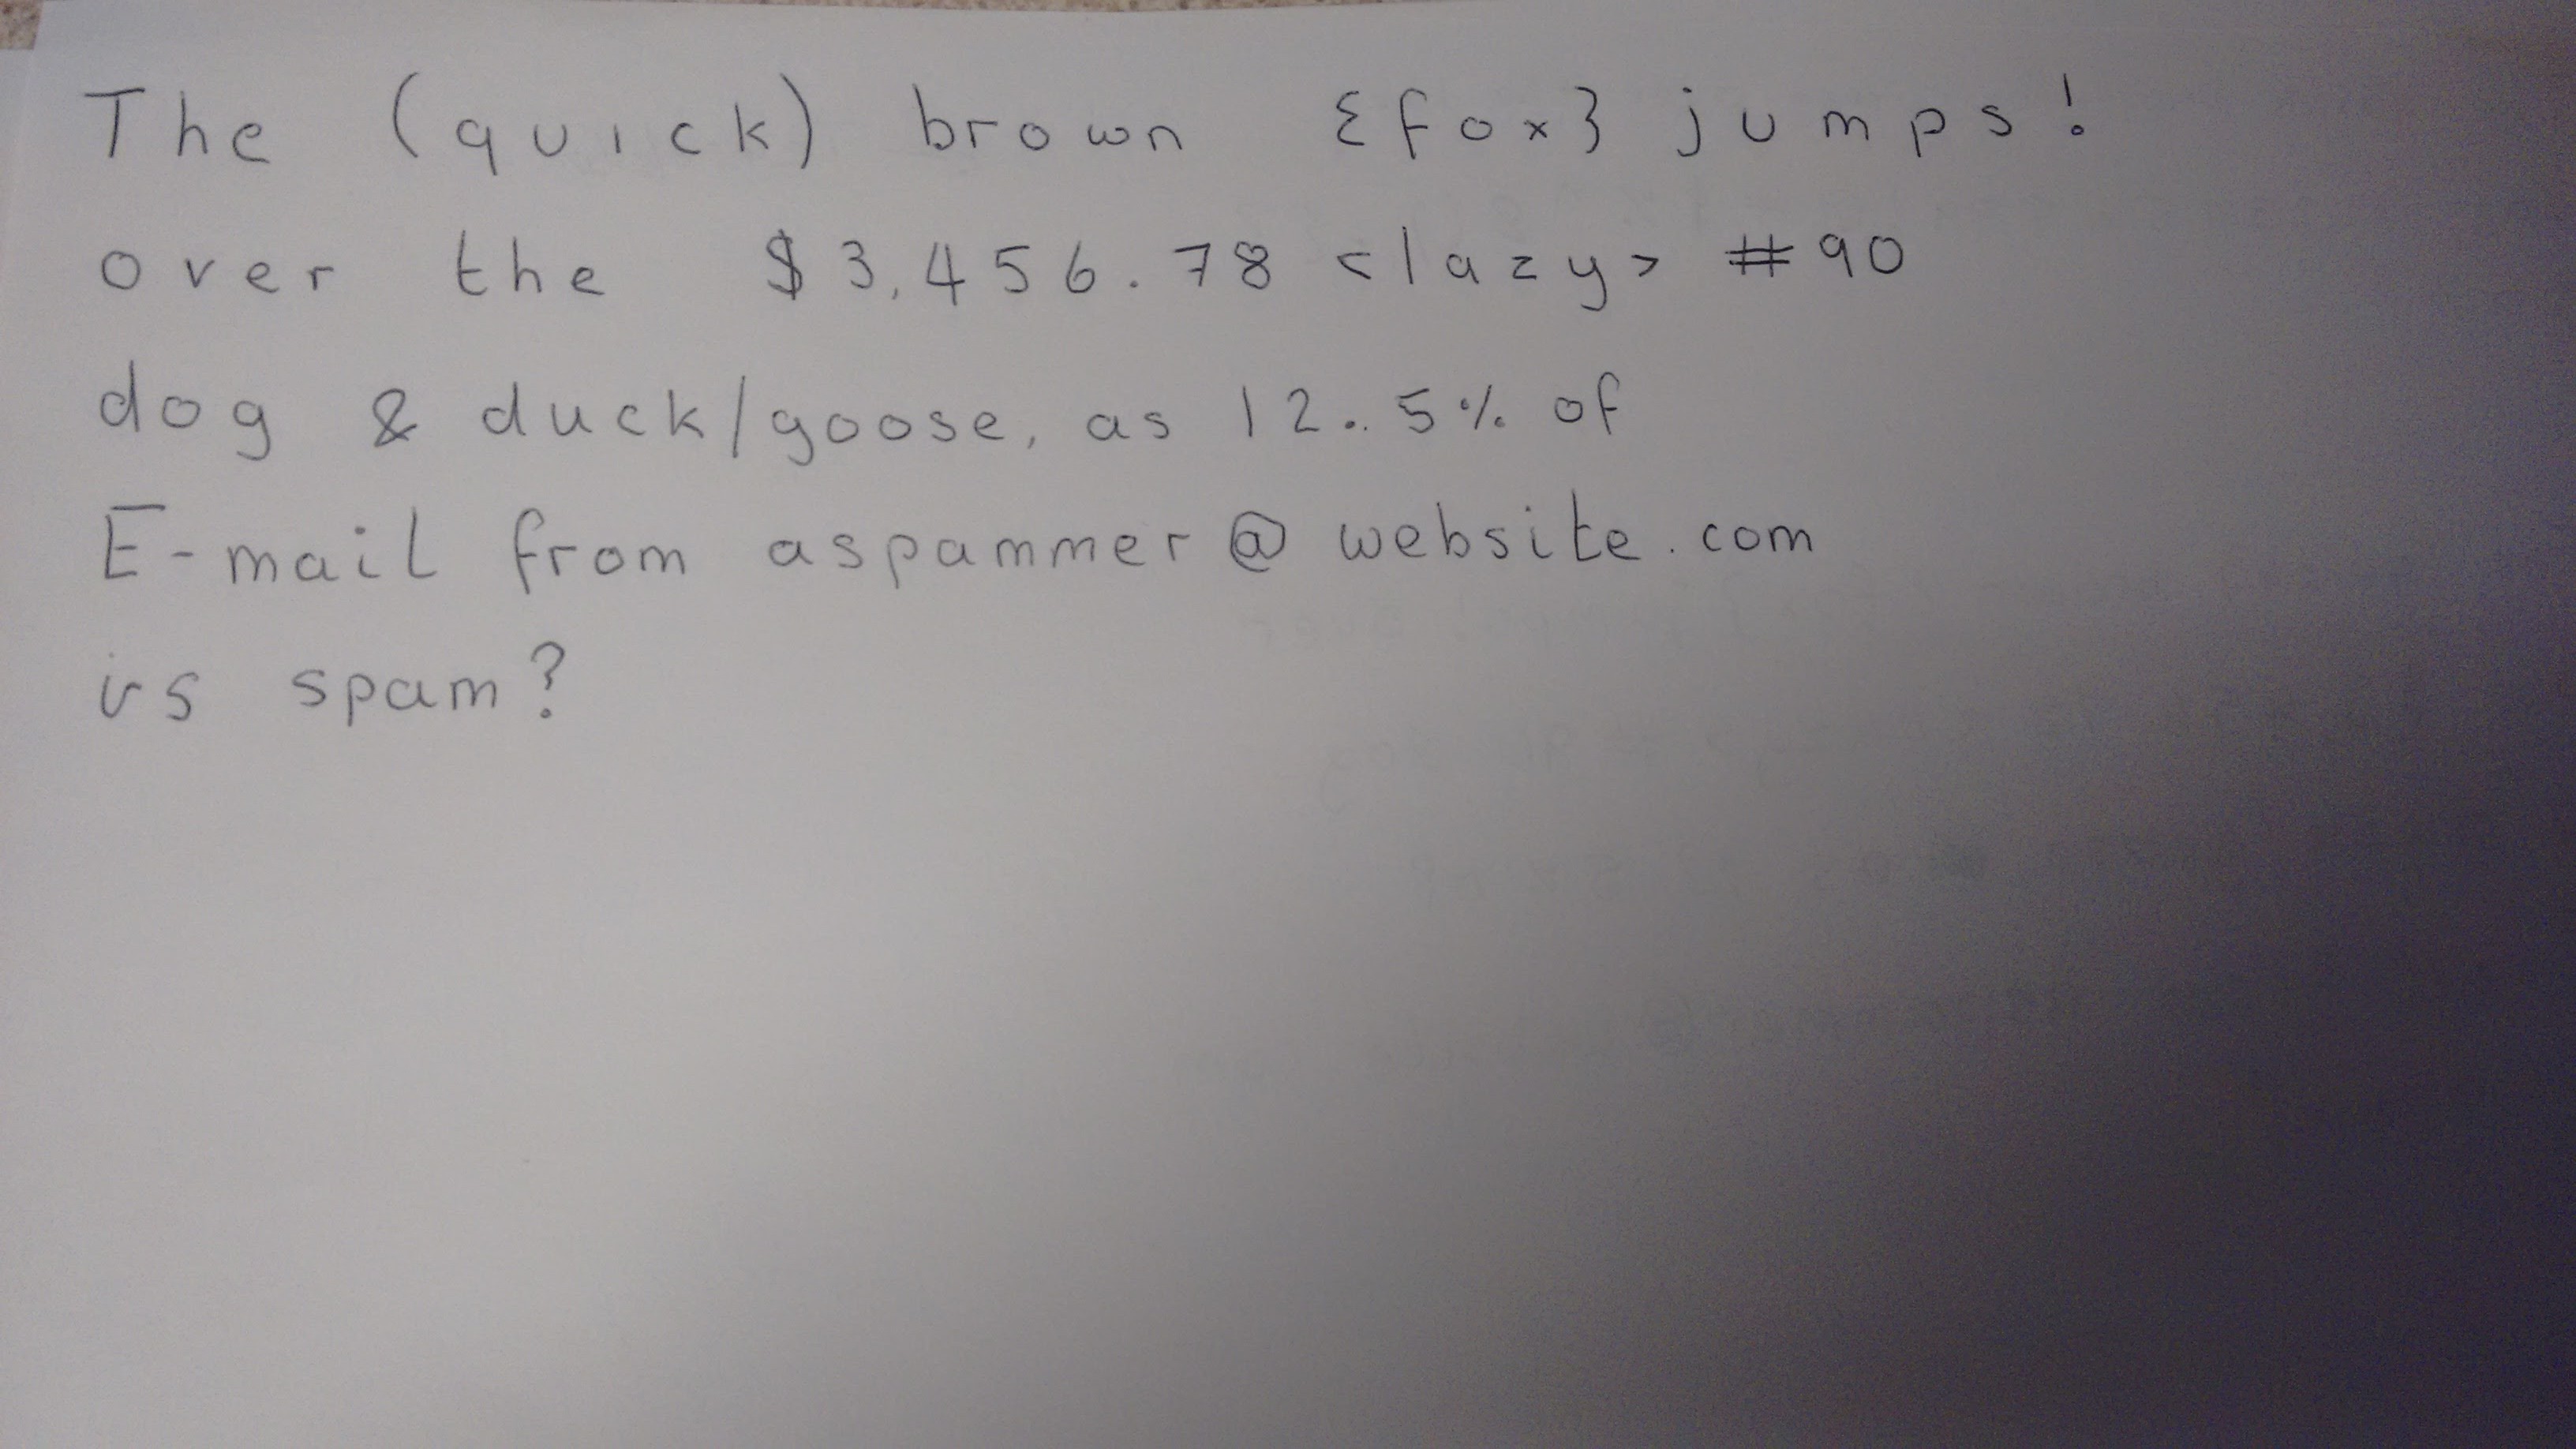 The (quick) brown {fox} jumps!
over the $3,456.78 <lazy> #90
dog & duck/goose, as 12..5% of
E-mail from aspammer@website.com
is spam?